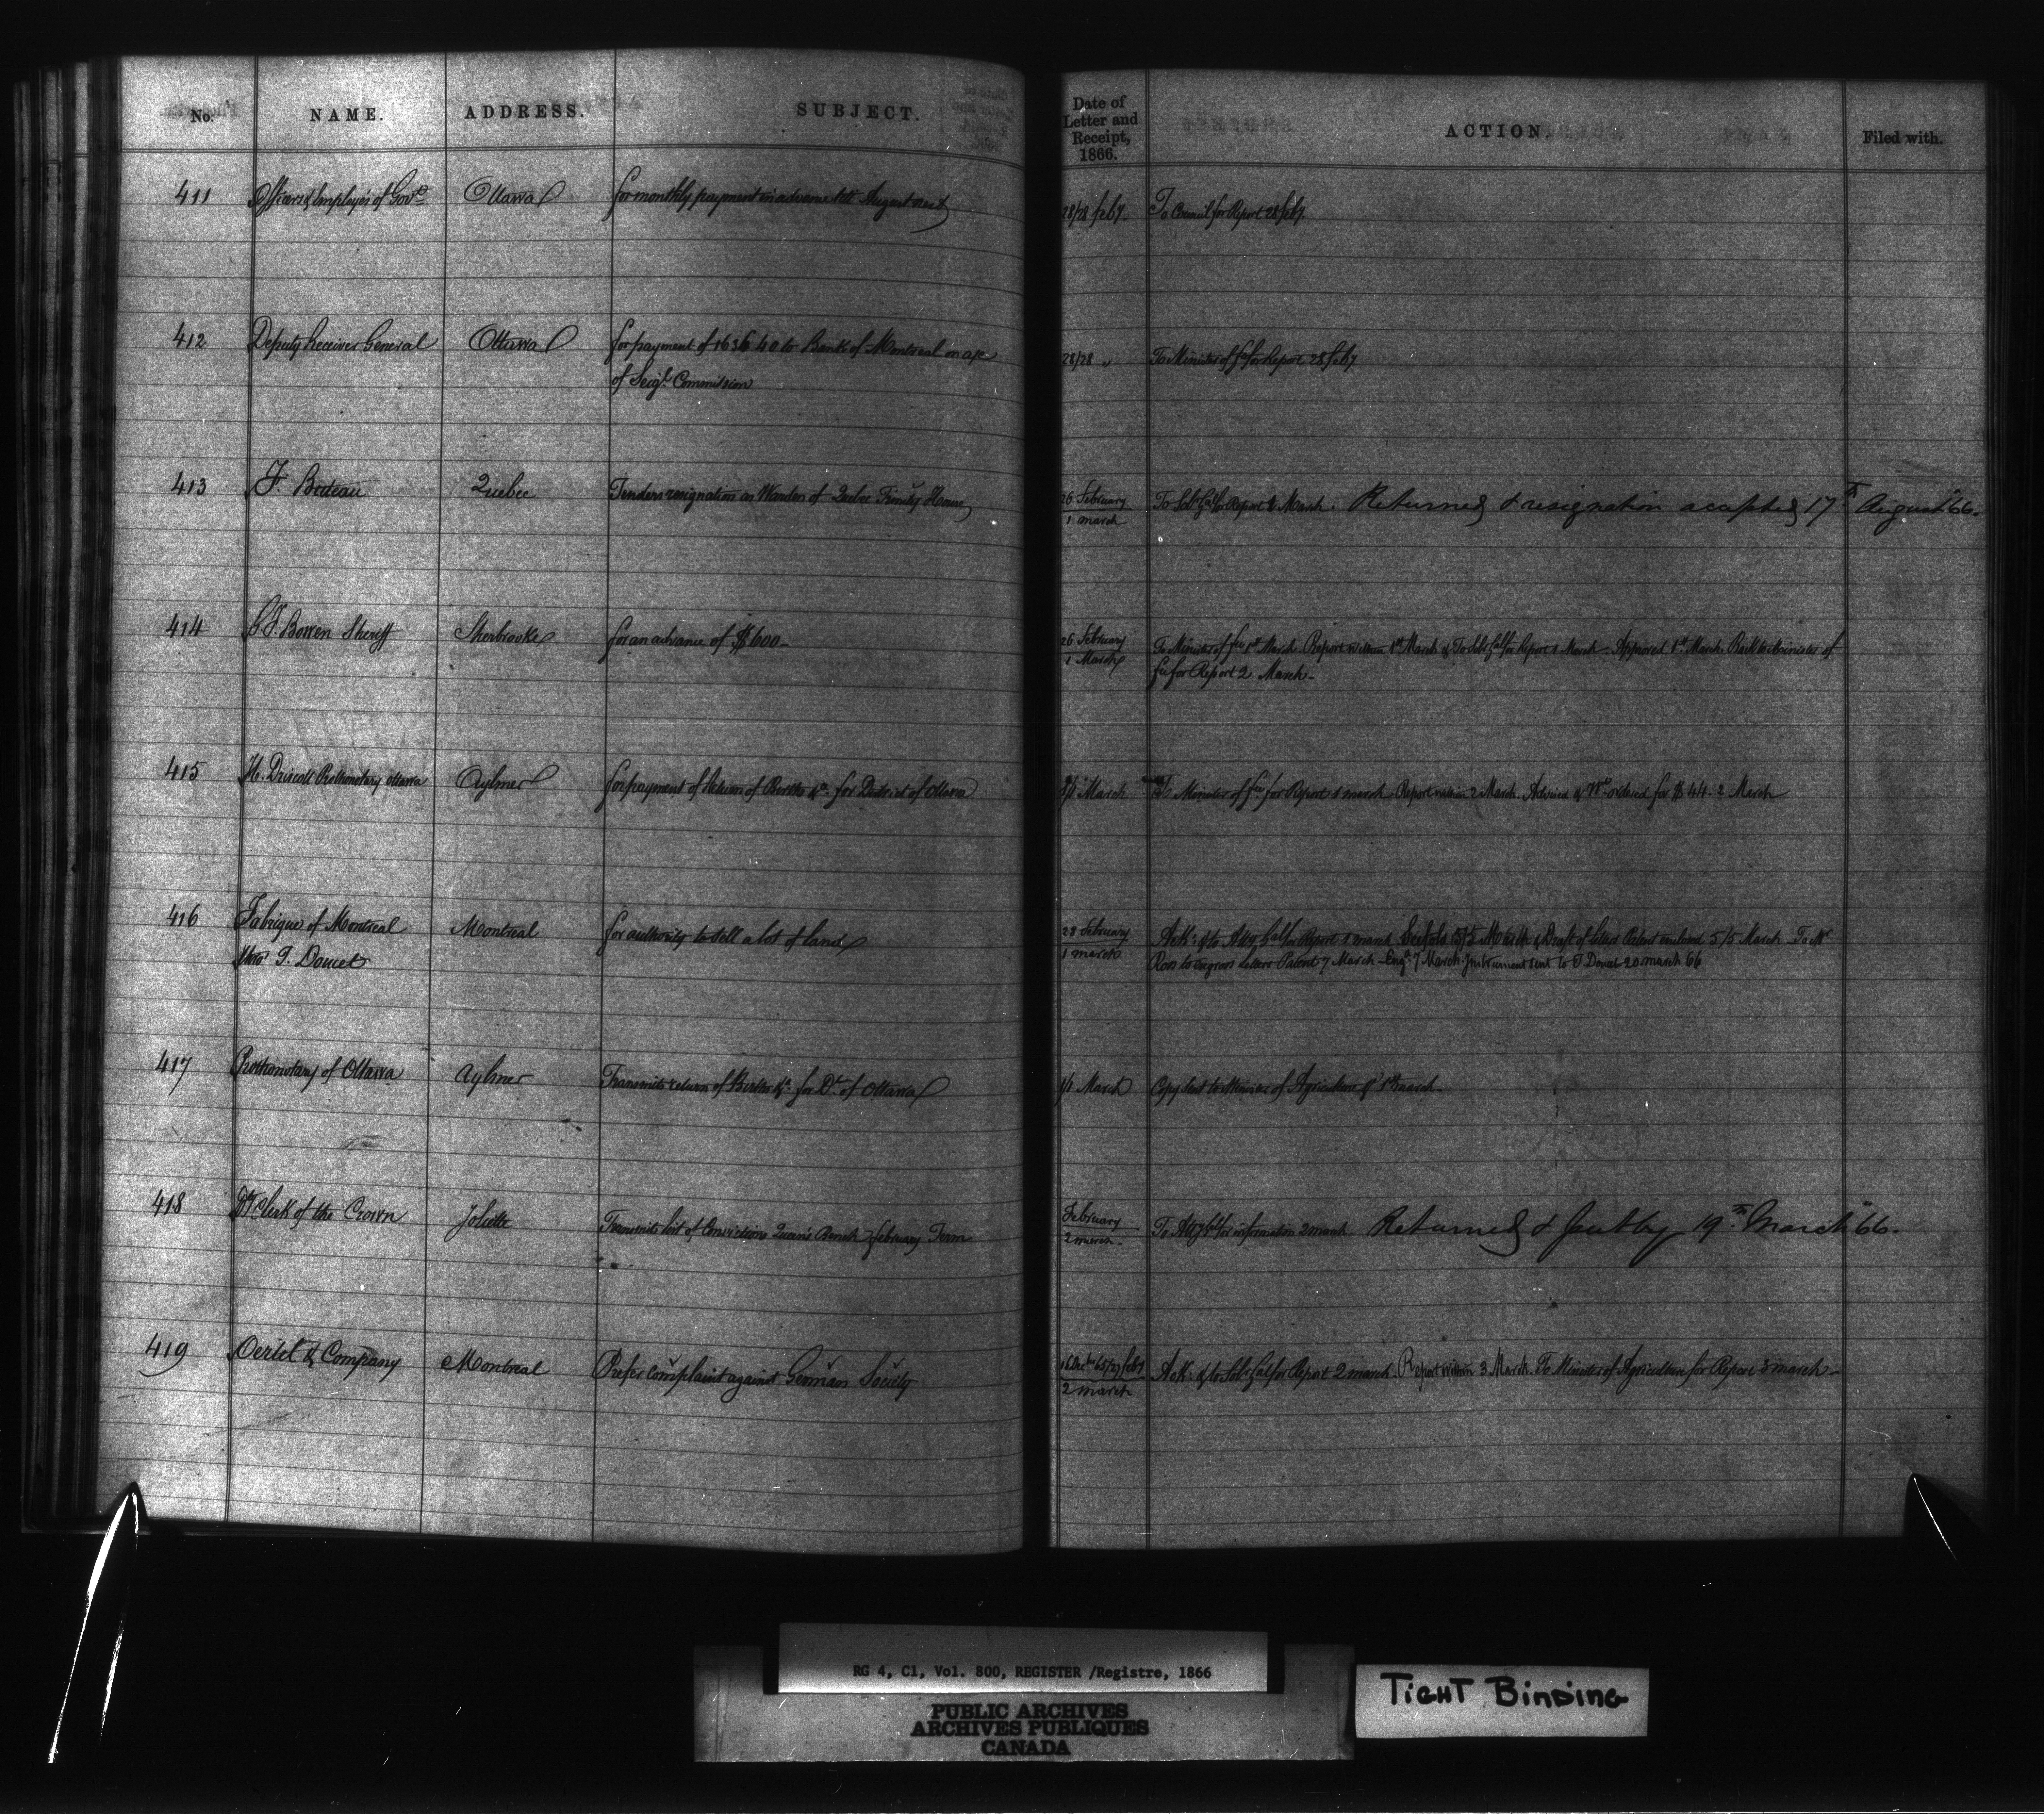 No. NAME. ADDRESS. SUBJECT. Date of Letter and Receipt, 1866. ACTION. Filed with.
411 Officers & Employés of Govt Ottawa for monthly payment in advance till August next 28/28 feby To Council for Report 28 feby.
412 Deputy Receiver General Ottawa for payment of 1636 40 to Bank of Montreal on a/c 28/28 " To Minister of fce for Report 28 feby
of Seigl. Commission
413 F. Buteau Quebec Tenders resignation as Warden of Quebec Trinity House 26 February To Solr Gal for Report March. Returned & resignation accepted 17th August 66.
1 march
414 G. F. Bowen Sheriff Sherbrooke for an advance of $600- 26 February To Minister of fce 1st March. Report within 1st March & To Solr Gal for Report 1 March. Approved 1st March. Back to Minister of
1 March fce for Report 2 March-
415 H. Driscoll Prothonotary Ottawa Aylmer for payment of Return of Births &c. for District of Ottawa 1/1 March To Minister of fce for Report 1 march. Report within 2 March. Advised & Wt. ordered for $44- 2 March
416 Fabrique of Montreal Montreal for authority to sell a lot of land 28 February Ack: & to Atty Gal for Report 1 march 5/5 March & Draft of letters Patent enclosed 5/5 March To Mr
Thro T. Doucet 1 march Ross to engross letters Patent 7 March - Engd. 7 March. Instrument sent to T. Doucet 20 march 66
417 Prothonotary of Ottawa Aylmer Transmits return of Births &c. for Dt. of Ottawa 1/1 March Copy sent to Minister of Agriculture 1st march.
418 Dy Clerk of the Crown Joliette Transmits list of Convictions Queen's Bench February Term February To Atty Gal for information 2 march Returned 19th March 66.
2 march-
419 Oertel & Company Montreal Prefer complaint against German Society 16 Decber 65/27 feby Ack: & to Sol: Gal for Report 2 march. Report within 3 March. To Minister of Agriculture for Report 3 march-
2 march
RG 4, C1, Vol. 800, REGISTER /Registre, 1866
PUBLIC ARCHIVES
ARCHIVES PUBLIQUES
CANADA
TIGHT BINDING